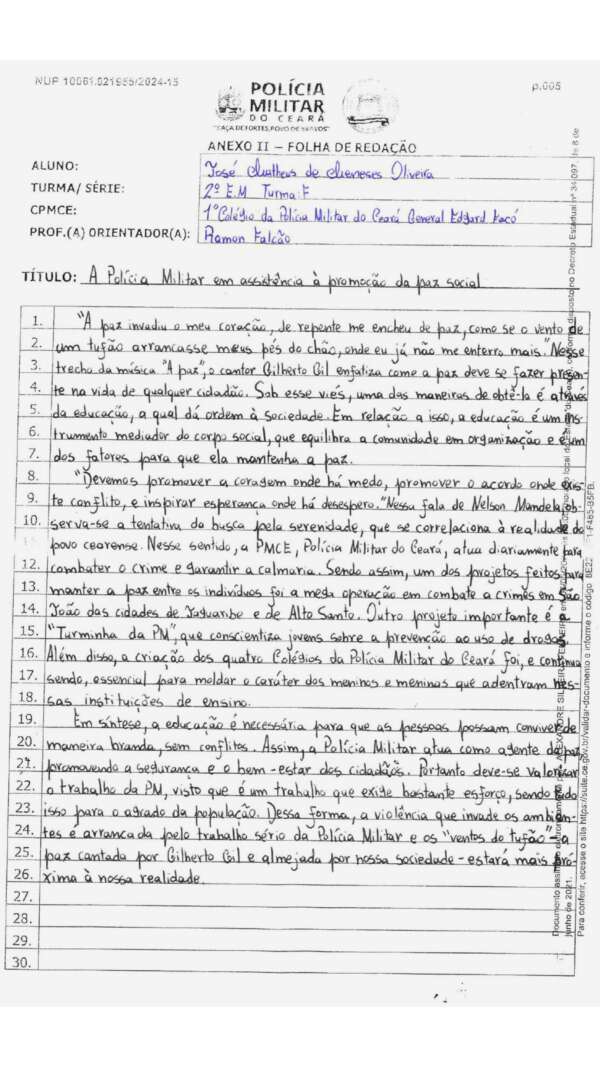 NUP 10061.021955/2024-15
p.005
POLÍCIA
MILITAR
DO CEARÁ
ANEXO II – FOLHA DE REDAÇÃO
ALUNO: José Matheus de Meneses Oliveira
TURMA/ SÉRIE: 2º E.M Turma: F
CPMCE: 1º Colégio da Polícia Militar do Ceará General Edgard Facó
PROF.(A) ORIENTADOR(A): Ramon Falcão
TÍTULO: A Polícia Militar em assistência à promoção da paz social
1. "A paz invadiu o meu coração, de repente me encheu de paz, como se o vento de
2. um tufão arrancasse meus pés do chão, onde eu já não me enterro mais." Nesse
3. trecho da música "A paz", o cantor Gilberto Gil enfatiza como a paz deve se fazer presen-
4. te na vida de qualquer cidadão. Sob esse viés, uma das maneiras de obtê-la é através
5. da educação, a qual dá ordem à sociedade. Em relação a isso, a educação é um ins-
6. trumento mediador do corpo social, que equilibra a comunidade em organização e é um
7. dos fatores para que ela mantenha a paz.
8. "Devemos promover a coragem onde há medo, promover o acordo onde exis-
9. te conflito, e inspirar esperança onde há desespero." Nessa fala de Nelson Mandela, ob-
10. serva-se a tentativa da busca pela serenidade, que se correlaciona à realidade do
povo cearense. Nesse sentido, a PMCE, Polícia Militar do Ceará, atua diariamente para
12. combater o crime e garantir a calmaria. Sendo assim, um dos projetos feitos para
13. manter a paz entre os indivíduos foi a mega operação em combate a crimes em São
14. João das cidades de Jaguaribe e de Alto Santo. Outro projeto importante é a
15. "Turminha da PM", que conscientiza jovens sobre a prevenção ao uso de drogas.
16. Além disso, a criação dos quatro Colégios da Polícia Militar do Ceará foi, e continua
17. sendo, essencial para moldar o caráter dos meninos e meninas que adentram nes-
18. sas instituições de ensino.
19. Em síntese, a educação é necessária para que as pessoas possam conviver de
20. maneira branda, sem conflitos. Assim, a Polícia Militar atua como agente da paz
21. promovendo a segurança e o bem-estar dos cidadãos. Portanto deve-se valorizar
22. o trabalho da PM, visto que é um trabalho que exige bastante esforço, sendo tudo
23. isso para o agrado da população. Dessa forma, a violência que invade os ambien-
24. tes é arrancada pelo trabalho sério da Polícia Militar e os "ventos do tufão" - a
25. paz cantada por Gilberto Gil e almejada por nossa sociedade - estará mais pró-
26. xima à nossa realidade.
27.
28.
29.
30.
junho de 2021.